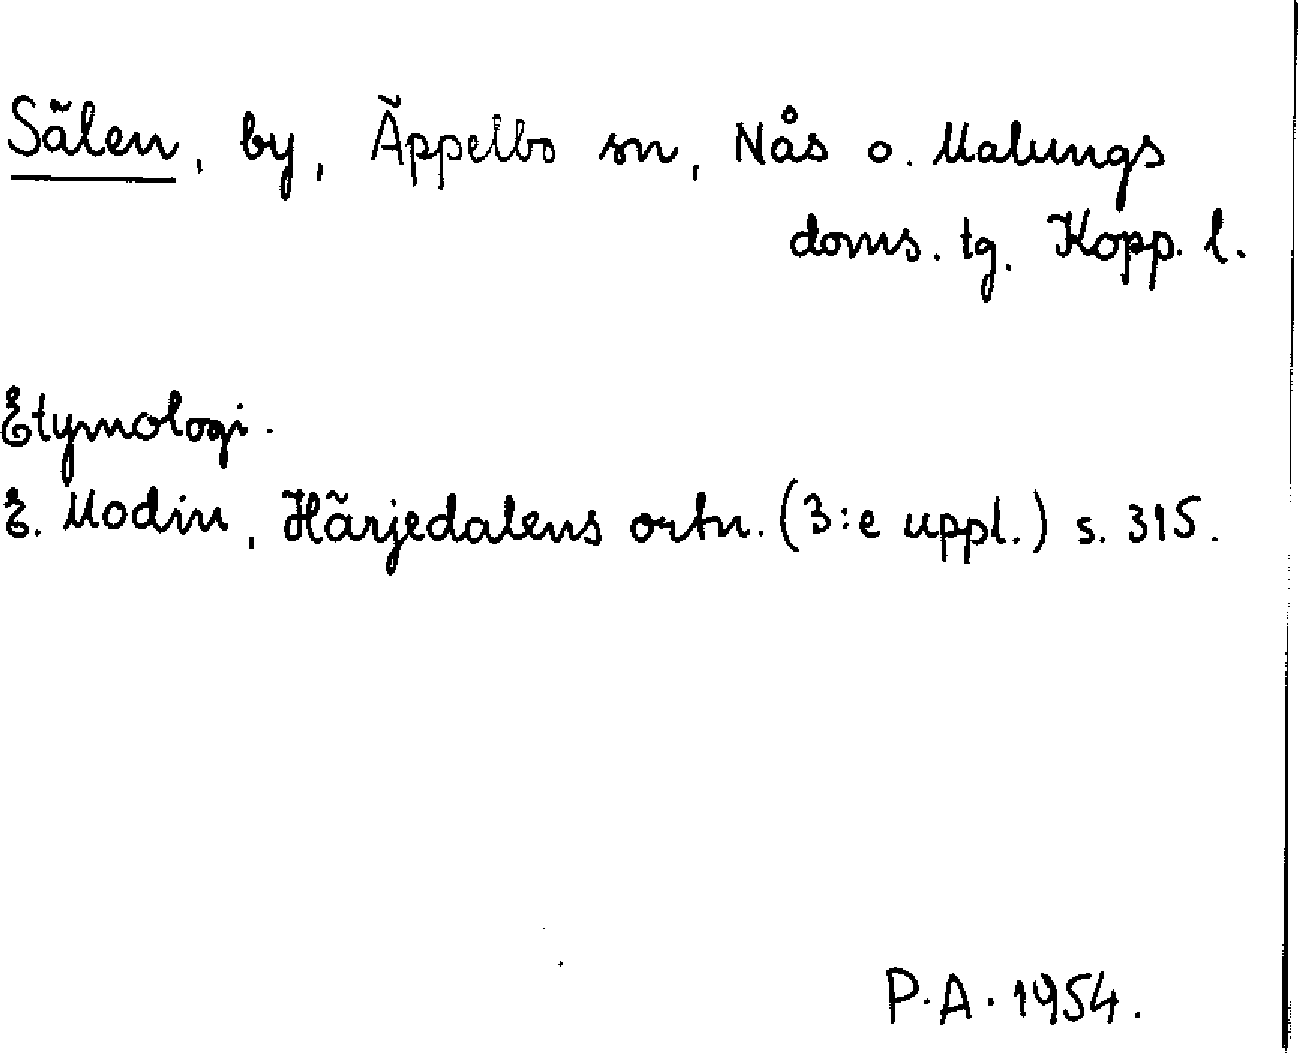 Sälen, by, Äppelbo sn, Nås o. Malungs
doms. tg. Kopp. l.
Etymologi.
E. Modin, Härjedalens ortn. (3:e uppl.) s. 315.
P.A. 1954.